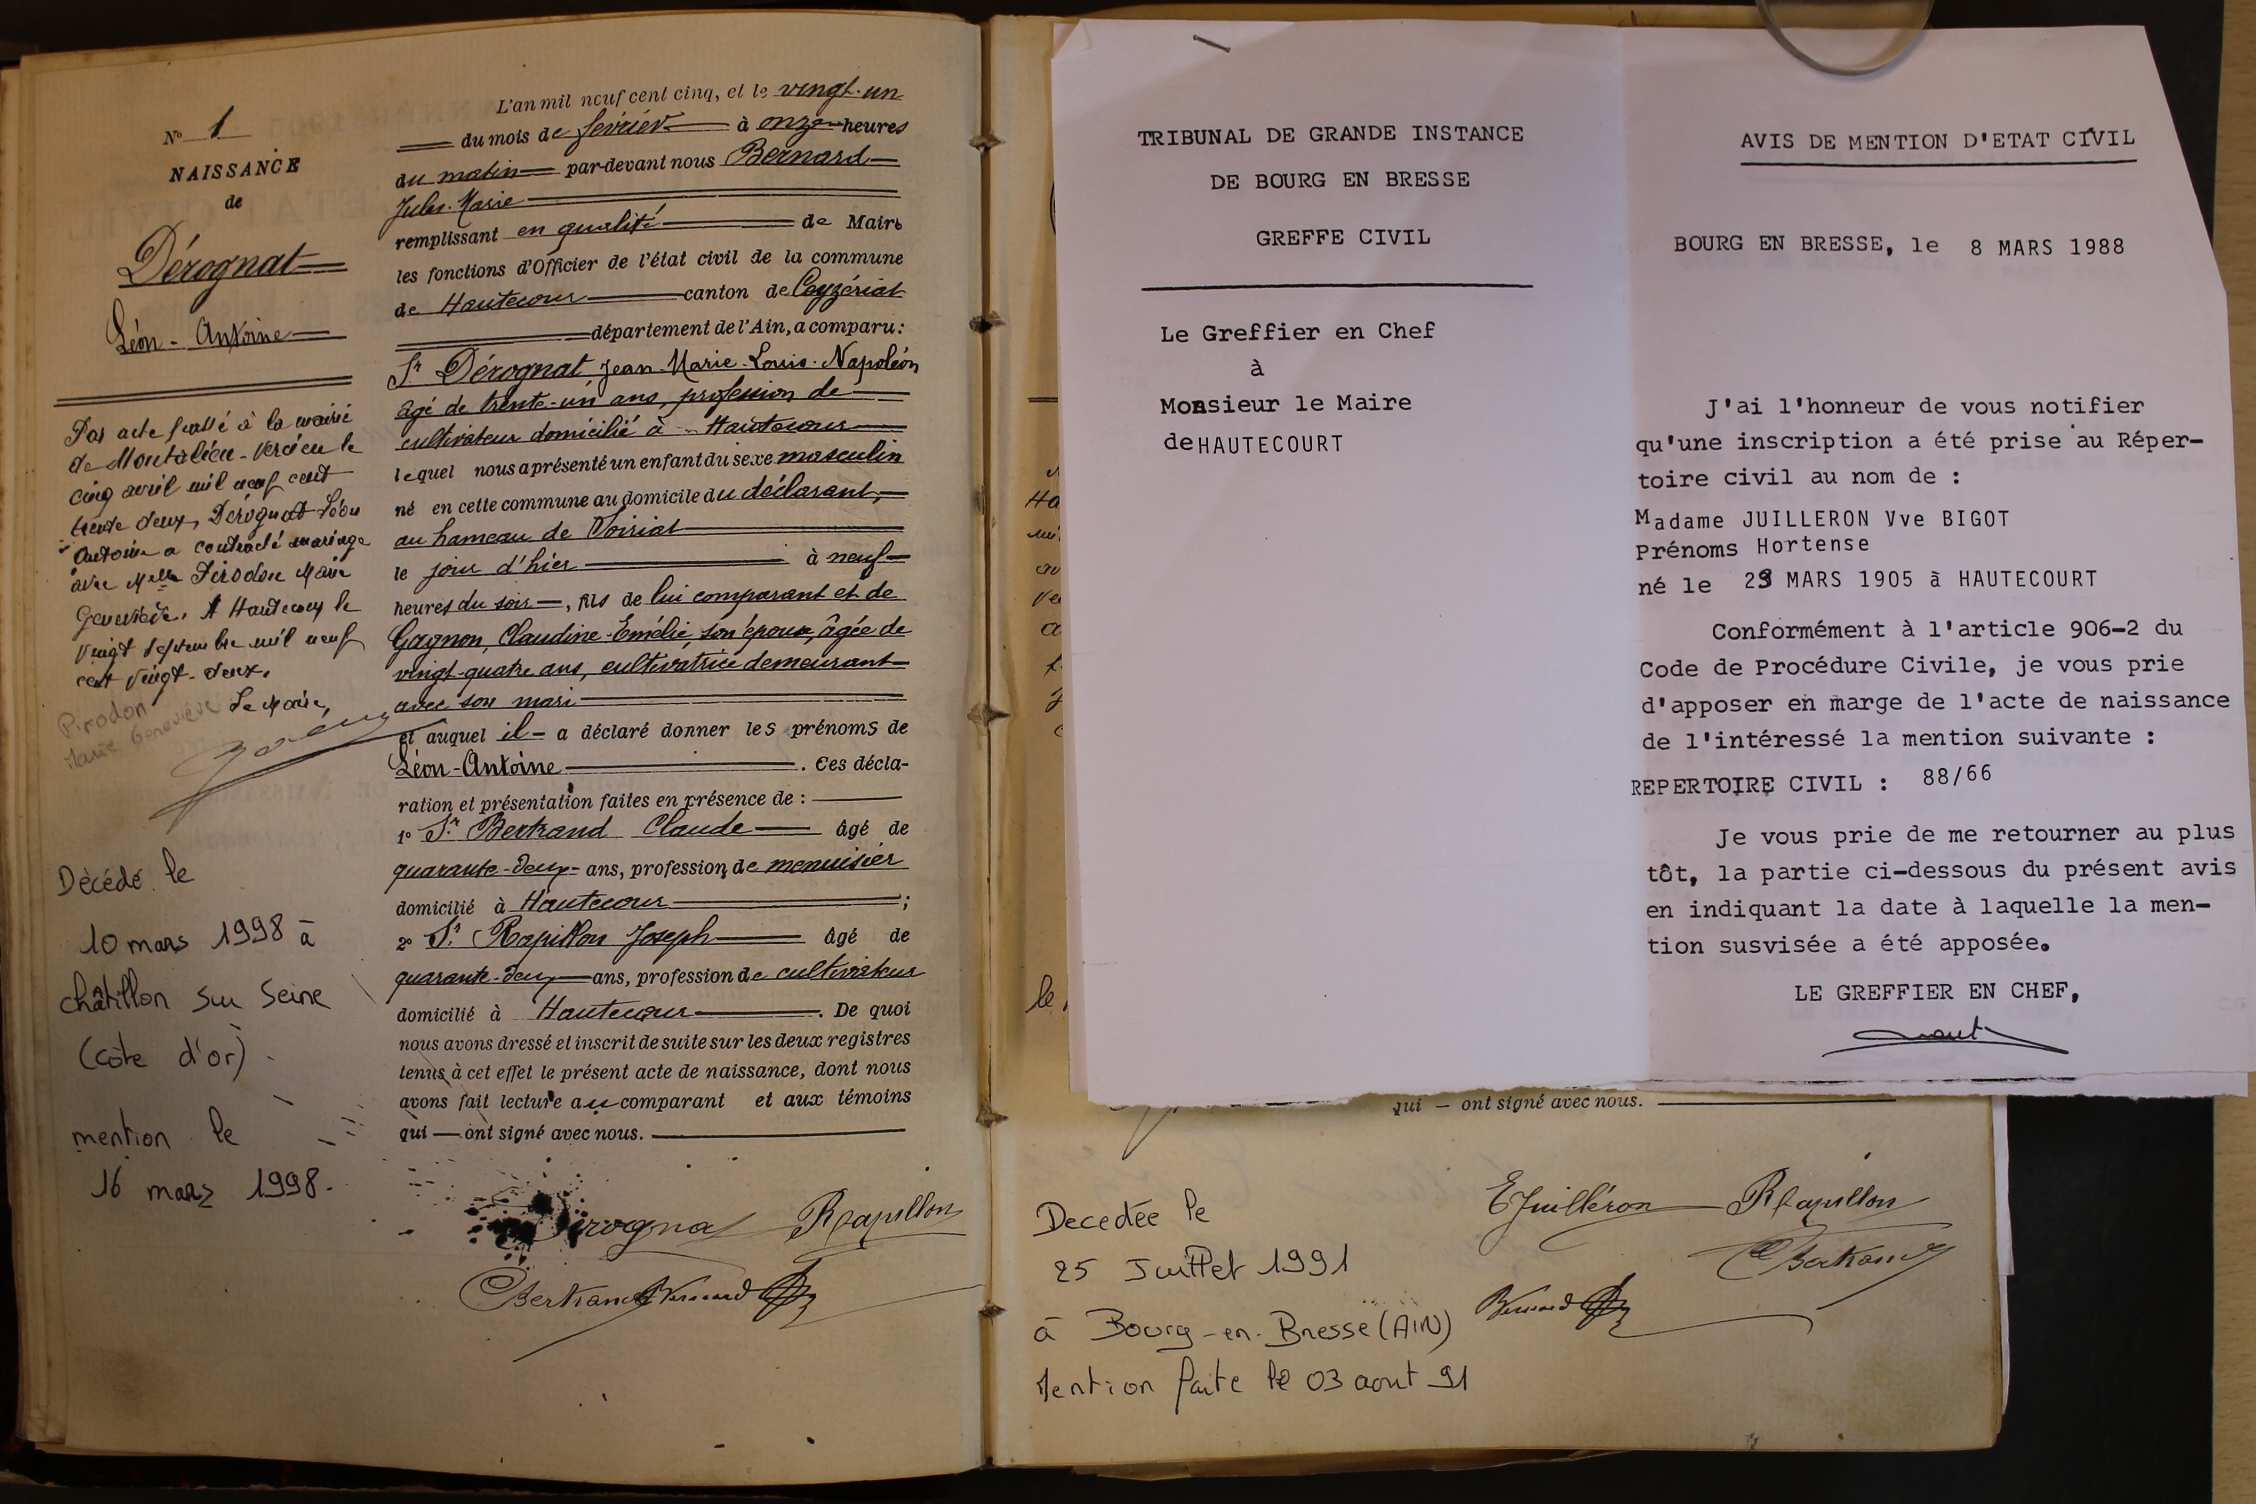 N° 1
NAISSANCE
de
Dérognat
Léon-Antoine
Par acte passé à la mairie
de Montalieu-Vercieu le
cinq avril mil neuf cent
trente deux, Dérognat Léon
Antoine a contracté mariage
avec Melle Pirodon Marie
Geneviève. A Hautecour le
vingt septembre mil neuf
cent vingt-deux.
Le Maire,
Pirodon
Marie Geneviève
Décédé le
10 mars 1998 à
châtillon sur Seine
(côte d'or)
mention le
16 mars 1998.
L'an mil neuf cent cinq, et le vingt-un
du mois de février à onze heures
du matin par-devant nous Bernard
Jules-Marie
remplissant en qualité de Maire
les fonctions d'Officier de l'état civil de la commune
de Hautecour canton de Ceyzériat
département de l'Ain, a comparu:
Sr Dérognat Jean-Marie-Louis-Napoléon
âgé de trente-un ans, profession de
cultivateur domicilié à Hautecour
lequel nous a présenté un enfant du sexe masculin
né en cette commune au domicile du déclarant,
au hameau de Voiriat
le jour d'hier à neuf
heures du soir, fils de lui comparant et de
Gagnon, Claudine-Emélie, son épouse, âgée de
vingt-quatre ans, cultivatrice demeurant
avec son mari
et auquel il a déclaré donner les prénoms de
Léon-Antoine. Ces décla-
ration et présentation faites en présence de :
1° Sr Bertrand Claude âgé de
quarante-deux ans, profession de menuisier
domicilié à Hautecour ;
2° Sr Rapillon Joseph âgé de
quarante-deux ans, profession de cultivateur
domicilié à Hautecour. De quoi
nous avons dressé et inscrit de suite sur les deux registres
tenus à cet effet le présent acte de naissance, dont nous
avons fait lecture au comparant et aux témoins
qui — ont signé avec nous.
Dérognat Rapillon
CBertrand Bernard
TRIBUNAL DE GRANDE INSTANCE
DE BOURG EN BRESSE
GREFFE CIVIL
Le Greffier en Chef
à
Monsieur le Maire
de HAUTECOURT
AVIS DE MENTION D'ETAT CIVIL
BOURG EN BRESSE, le 8 MARS 1988
J'ai l'honneur de vous notifier
qu'une inscription a été prise au Réper-
toire civil au nom de :
Madame JUILLERON Vve BIGOT
Prénoms Hortense
né le 29 MARS 1905 à HAUTECOURT
Conformément à l'article 906-2 du
Code de Procédure Civile, je vous prie
d'apposer en marge de l'acte de naissance
de l'intéressé la mention suivante :
REPERTOIRE CIVIL : 88/66
Je vous prie de me retourner au plus
tôt, la partie ci-dessous du présent avis
en indiquant la date à laquelle la men-
tion susvisée a été apposée.
LE GREFFIER EN CHEF,
qui — ont signé avec nous.
EJuilléron Rapillon
CBertrand
Bernard
Decedée le
25 Juillet 1991
à Bourg-en-Bresse (AIN)
Mention faite le 03 aout 91